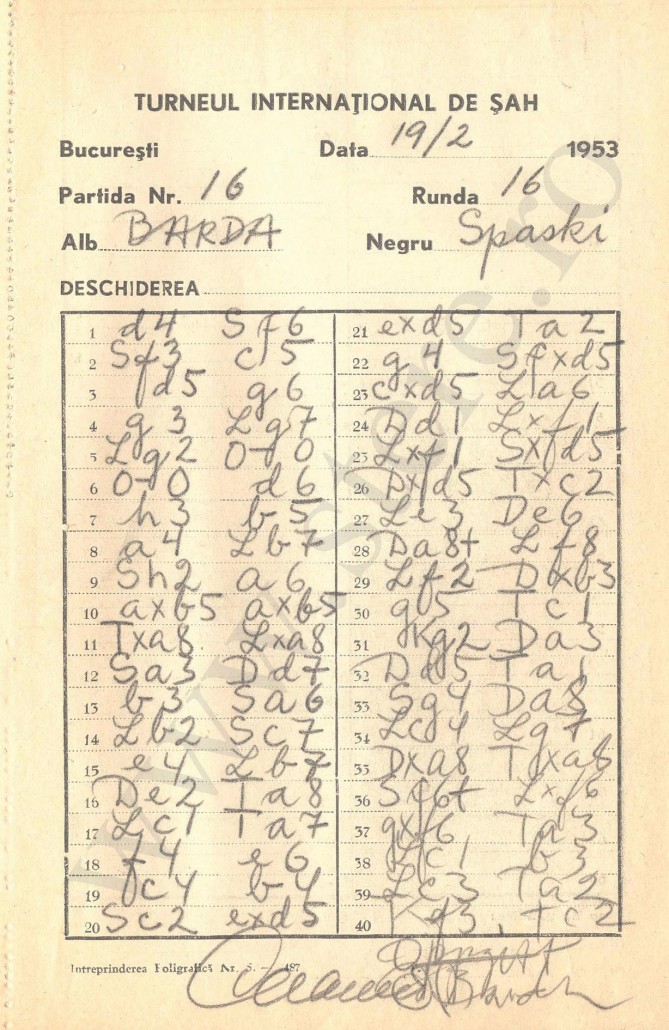 TURNEUL INTERNAŢIONAL DE ŞAH
Bucureşti Data 19/2 1953
Partida Nr. 16 Runda 16
Alb BARDA Negru Spaski
DESCHIDEREA
1 d4 Sf6 21 exd5 Ta2
2 Sf3 c5 22 g4 Sfxd5
3 d5 g6 23 cxd5 La6
4 g3 Lg7 24 Dd1 Lxf1
5 Lg2 0-0 25 Lxf1 Sxd5
6 0-0 d6 26 Dxd5 Txc2
7 h3 b5 27 Le3 De6
8 a4 Lb7 28 Da8+ Lf8
9 Sh2 a6 29 Lf2 Dxb3
10 axb5 axb5 30 g5 Tc1
11 Txa8 Lxa8 31 Kg2 Da3
12 Sa3 Dd7 32 Dd5 Ta1
13 b3 Sa6 33 Sg4 Da8
14 Lb2 Sc7 34 Lc4 Lg7
15 e4 Lb7 35 Dxa8 Txa8
16 De2 Ta8 36 Sf6+ Lxf6
17 Lc1 Ta7 37 gxf6 Ta3
18 f4 e6 38 c1 b3
19 c4 b4 39 Lc3 Ta2
20 Sc2 exd5 40 Tc2
Intreprinderea Poligrafică Nr. 5. — 487
www.stere.ro